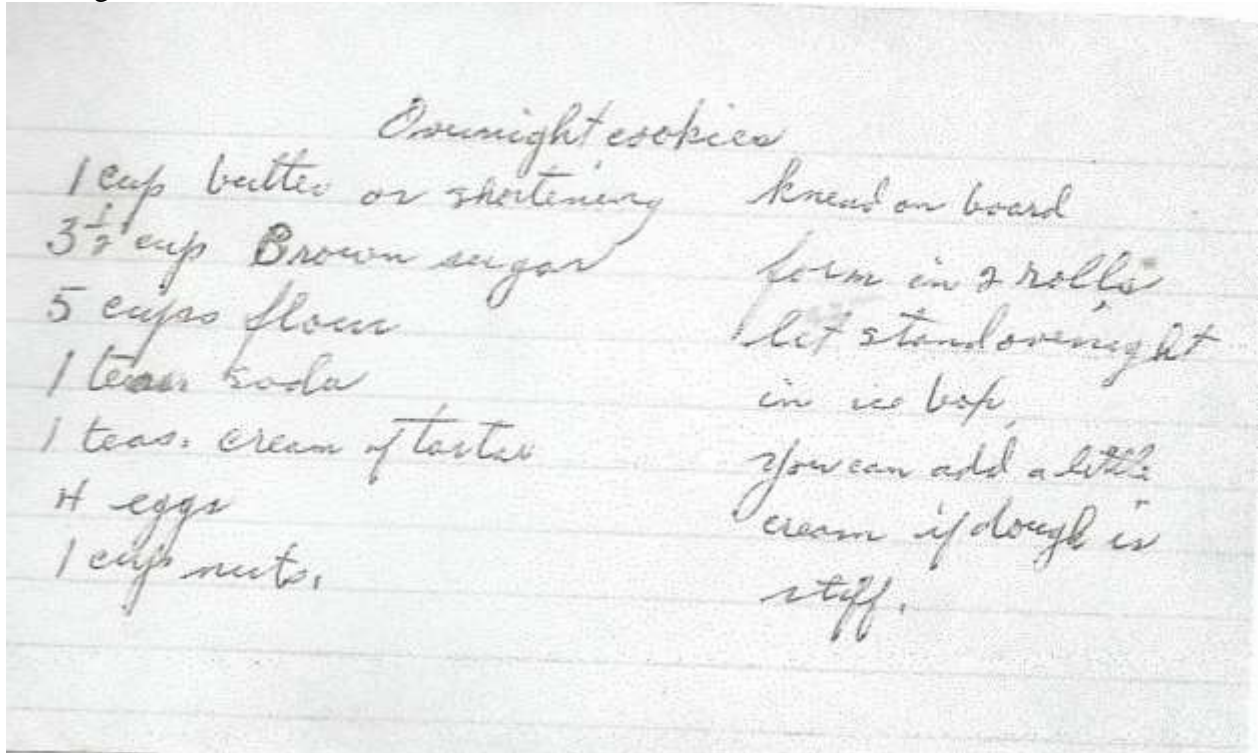 Overnight cookies
1 cup butter or shortening
3 1/2 cup Brown sugar
5 cups flour
1 teas soda
1 teas. cream of tartar
4 eggs
1 cup nuts.
knead on board
form in 2 rolls
let stand overnight
in ice box
you can add a little
cream if dough is
stiff.